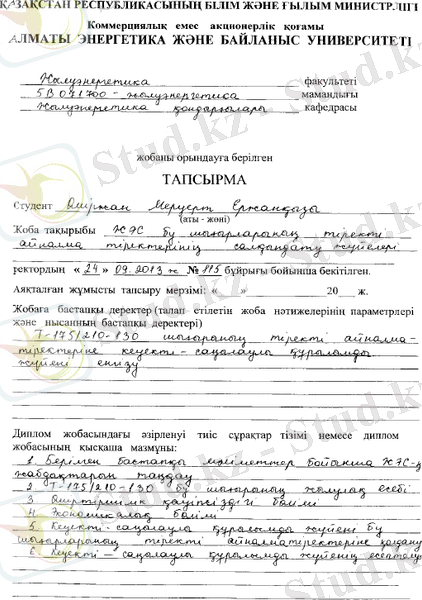 ҚАЗАҚСТАН РЕСПУБЛИКАСЫНЫҢ БІЛІМ ЖӘНЕ ҒЫЛЫМ МИНИСТРЛІГІ
Коммерциялық емес акционерлік қоғамы
АЛМАТЫ ЭНЕРГЕТИКА ЖӘНЕ БАЙЛАНЫС УНИВЕРСИТЕТІ
Жылуэнергетика факультеті
5В071700 - жылуэнергетика мамандығы
Жылуэнергетика қондырғылары кафедрасы
жобаны орындауға берілген
ТАПСЫРМА
Студент Өміржан Меруерт Ержанқызы
(аты - жөні)
Жоба тақырыбы ЖЭС бу шығырларының тіректі
айналма тіректерінің салқындату жүйелері
ректордың « 24 » 09. 2013 ж № 115 бұйрығы бойынша бекітілген.
Аяқталған жұмысты тапсыру мерзімі: « » 20 ж.
Жобаға бастапқы деректер (талап етілетін жоба нәтижелерінің параметрлері
және нысанның бастапқы деректері)
Т-175/210-130 шығырының тіректі айналма-
тіректеріне кеуекті-саңлаулы құрылымды
жүйені енгізу
Диплом жобасындағы әзірленуі тиіс сұрақтар тізімі немесе диплом
жобасының қысқаша мазмұны:
1 Берілген бастапқы мәліметтер бойынша ЖЭС-ң
жабдықтарын таңдау
2 Т-175/210-130 бу шығырының жылулық есебі
3 Өміртіршілік қауіпсіздігі бөлімі
4 Экономикалық бөлімі
5 Кеуекті-саңлаулы құрылымды жүйені бу
шығырларының тіректі айналматіректеріне қолдану
6 Кеуекті-саңлаулы құрылымды жүйенің есептелуі
Stud.kz - Stud.kz
Stud.kz - Stud.kz
Stud.kz - Stud.kz